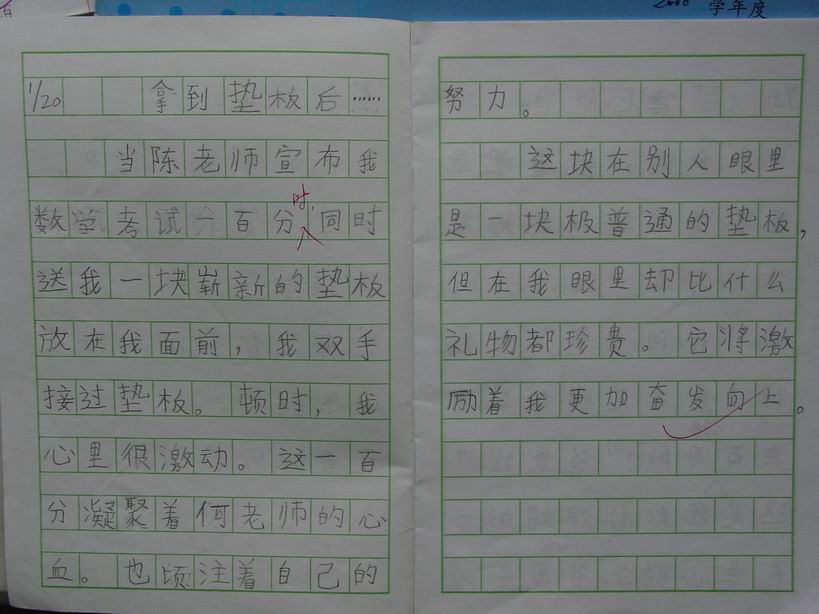 学年度
1/20 拿到垫板后……
当陈老师宣布我
数学考试一百分时,同时
送我一块崭新的垫板
放在我面前，我双手
接过垫板。顿时，我
心里很激动。这一百
分凝聚着何老师的心
血。也顷注着自己的
努力。
这块在别人眼里
是一块极普通的垫板，
但在我眼里却比什么
礼物都珍贵。它将激
励着我更加奋发向上。